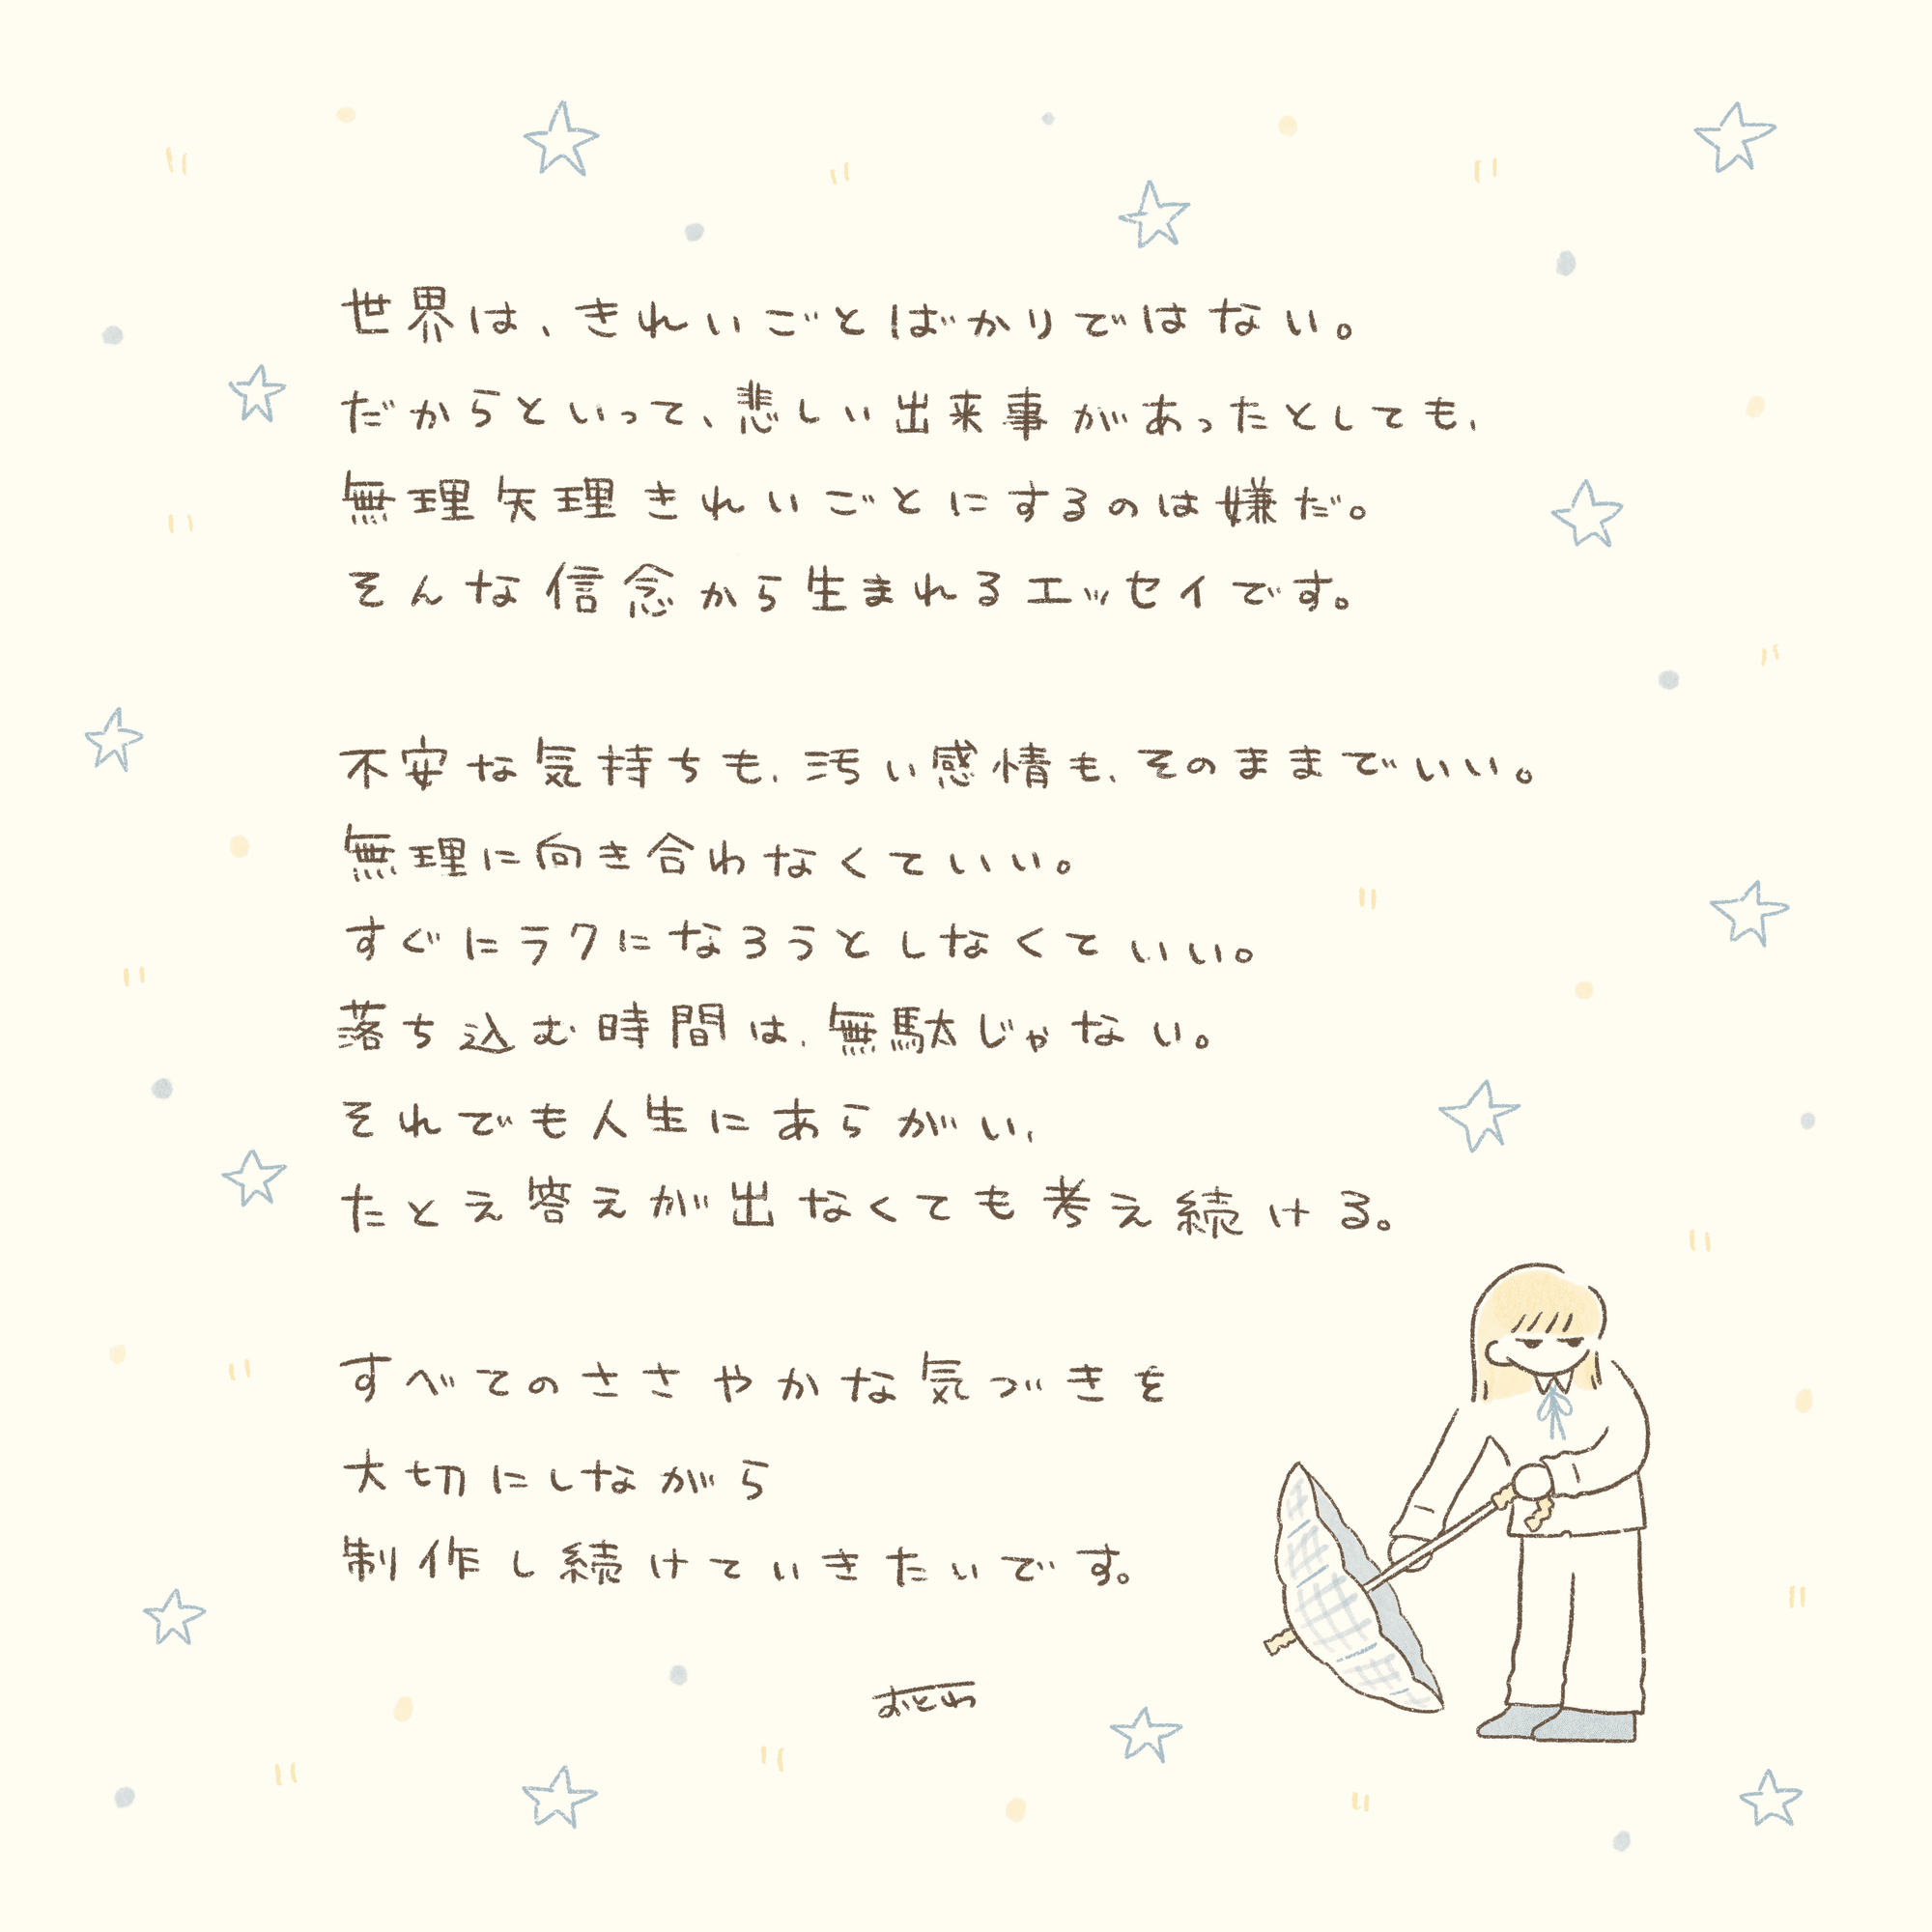 世界は、きれいごとばかりではない。
だからといって、悲しい出来事があったとしても、
無理矢理きれいごとにするのは嫌だ。
そんな信念から生まれるエッセイです。
不安な気持ちも、汚い感情も、そのままでいい。
無理に向き合わなくていい。
すぐにラクになろうとしなくていい。
落ち込む時間は、無駄じゃない。
それでも人生にあらがい、
たとえ答えが出なくても考え続ける。
すべてのささやかな気づきを
大切にしながら
制作し続けていきたいです。
おとわ